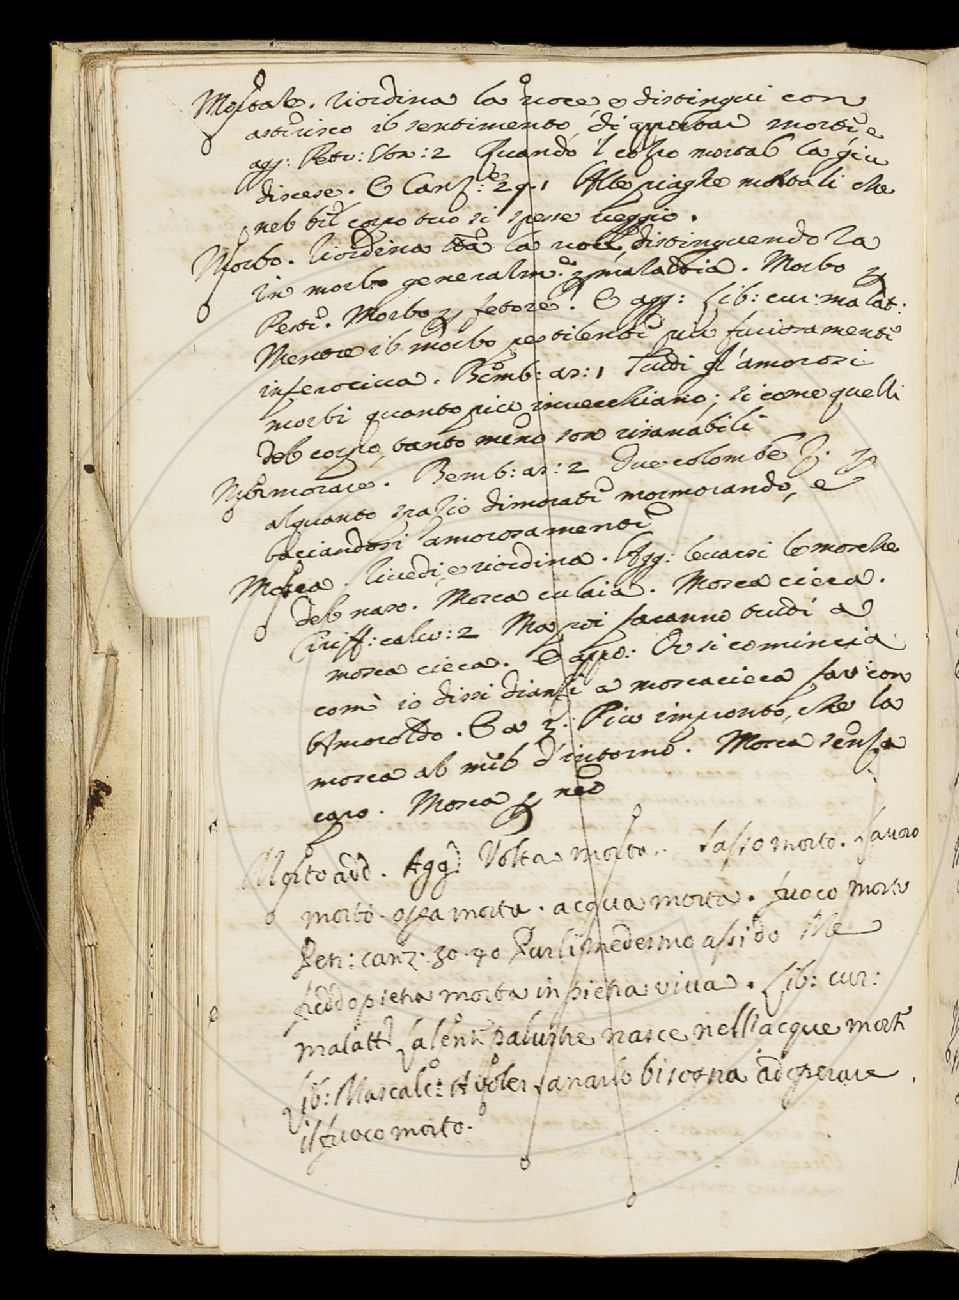 Mortale. riordina la voce e distingui con
asterisco il sentimento, di apportar morte e
agg: Petr: Son: 2 Quando 'l colpo mortal la giu
discese. E Canz: 29.1 Alle piaghe mortali che
nel bel corpo tuo si spesse veggio.
Morbo. riordina tta la voce distinguendola
in morbo generalm.e p malattia. Morbo p
Peste. Morbo p fetore. E agg: Lib: cur: malat:
Mentre il morbo pestilente piu furiosamente
inferociva. Bemb: as: 1 Tutti gl'amorosi
morbi quanto piu invecchiano; si come quelli
del corpo, tanto meno son risanabili
Mormorare. Bemb: as: 2 Due colombe p
alquanto spazio dimorate mormorando, e
baciandosi amorosamente
Mosca. rivedi, e riordina. Agg: levarsi le mosche
del naso. Mosca culaia. Mosca cieca.
Ciriff: calv: 2 Ma poi faranno tutti a
mosca cieca. E app: Or si comincia
com' io dissi dianzi a moscacieca far con
Amoroldo. E a Piu impronto, che la
mosca al mel d'intorno. Mosca senza
capo. Mosca p neo
Morto add. Agg Volta morta. Sasso morto. Lavoro
morto. opa morta. acqua morta. fuoco morto
Petr: canz: 30.40 Pur lì medesmo assido Me
freddo pietra morta in pietra viva. Lib: cur:
malatt palustre nasce nell'acque morte
Lib: Mascalc: A voler sanarlo bisogna adoperare
il fuoco morto.